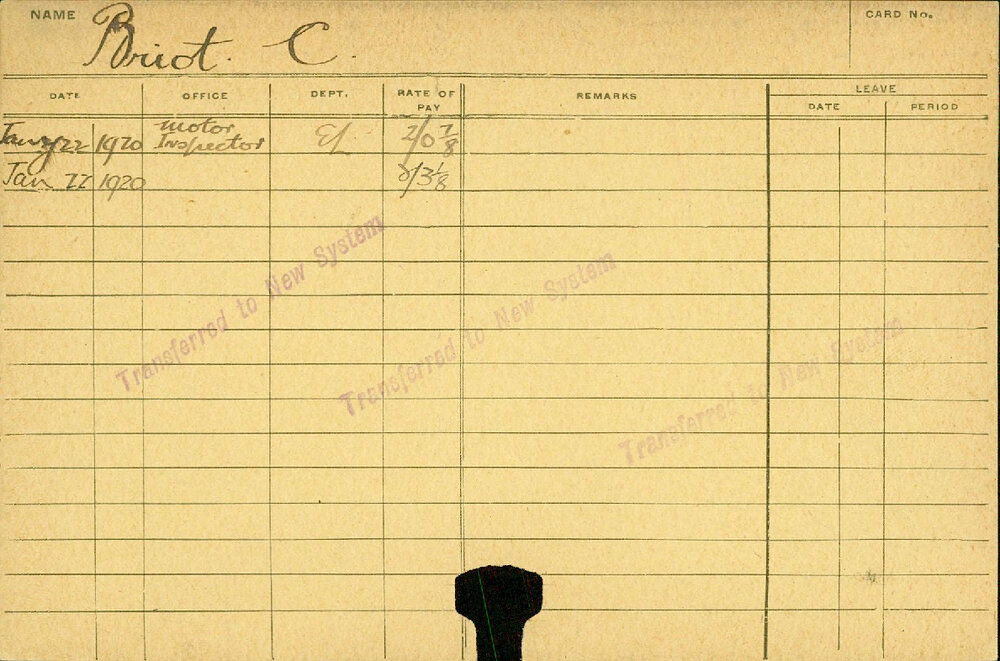 NAME Briot. C. CARD No.
DATE OFFICE DEPT. RATE OF PAY REMARKS LEAVE
DATE PERIOD
Jany 22 1920 Motor Inspector El 2/0 7/8
Jan 22 1920 2/3 1/8
Transferred to New System
Transferred to New System
Transferred to New System